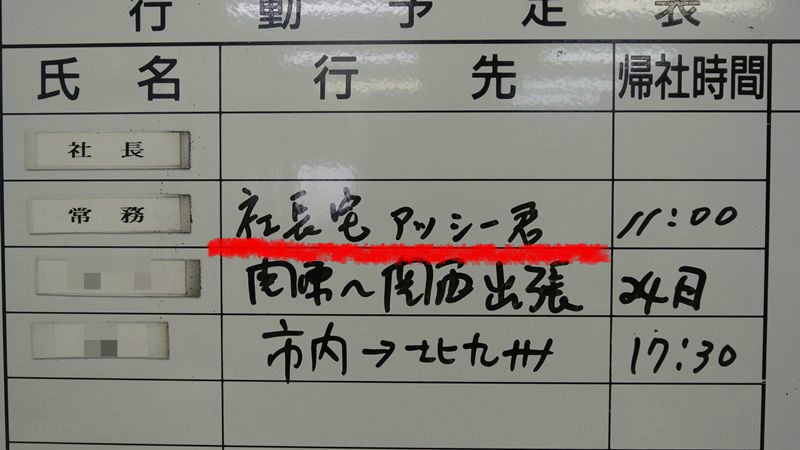 行動予定表
氏名 行先 帰社時間
社長
常務 社長宅アッシー君 11:00
関東〜関西出張 24日
市内→北九州 17:30